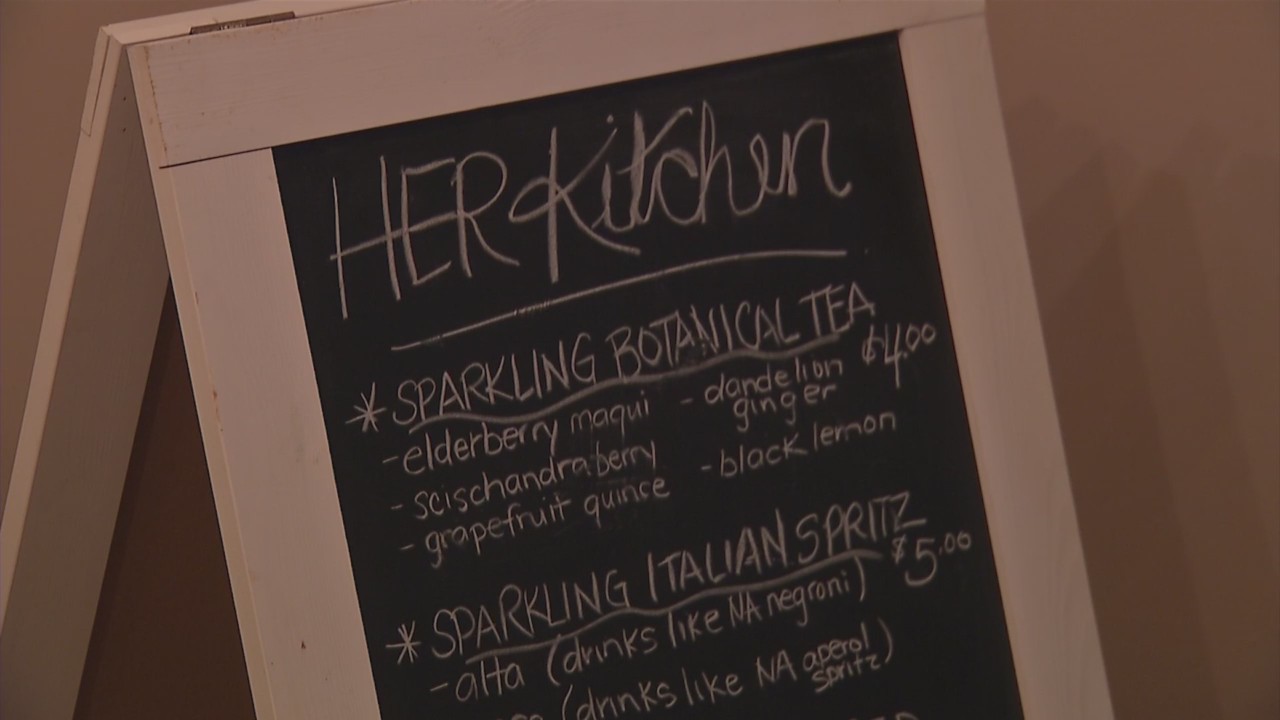 HER Kitchen
* SPARKLING BOTANICAL TEA $4.00
- elderberry maqui
- scischandra berry
- grapefruit quince
- dandelion ginger
- black lemon
* SPARKLING ITALIAN SPRITZ $5.00
- alta (drinks like NA negroni)
(drinks like NA aperol spritz)